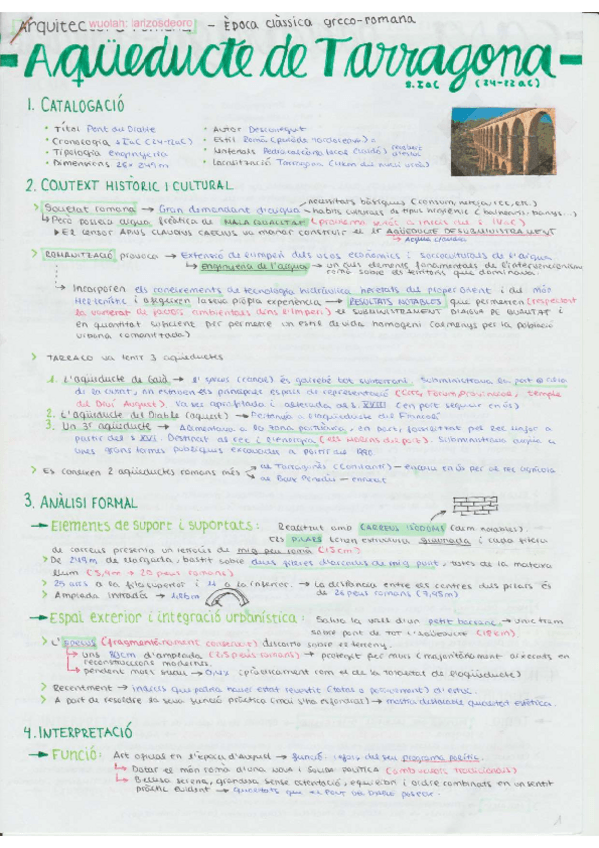 Arquitectura romana wuolah: larizosdeoro - Època clàssica greco-romana
Aqüeducte de Tarragona
s. I aC (24-12 aC)
1. CATALOGACIÓ
• Títol Pont du Diable • Autor Desconegut
• Cronologia s I aC (24-12aC) • Estil Romà
• Tipologia Enginyeria • Materials Pedra calcària local
• Dimensions 26 × 249 m • Localització Tarragona
2. CONTEXT HISTÒRIC I CULTURAL
> Societat romana → Gran demandant d'aigua → necessitats bàsiques (consum, neteja, rec, etc.)
→ habits culturals de tipus higiènic (balnearis, banys...)
↳ Però posseïa aigua freàtica de MALA QUALITAT
▸ El censor APIUS CLAUDIUS CAECUS va manar construir el 1r AQÜEDUCTE DE SUBMINISTRAMENT
↳ Acqua Claudia
> ROMANITZACIÓ provoca → Extensió de europeu dels usos econòmics i socioculturals de l'aigua
↳ enginyeria de l'aigua → un dels elements fonamentals de l'intervencionisme
romà sobre els territoris que dominava.
↳ Incorporen els coneixements de tecnologia hidràulica heretats del pròper Orient i del món
Hel·lenístic i afegeixen la seva pròpia experiència → RESULTATS NOTABLES que permeten (respectant
la varietat de factors ambientals dins l'Imperi) el SUBMINISTRAMENT D'AIGUA DE QUALITAT i
en quantitat suficient per permetre un estil de vida homogeni (almenys per la població
urbana romanitzada)
> TARRACO va tenir 3 aqüeductes
1. L'aqüeducte de Gaià → és gairebé tot subterrani. Subministrava
els principals espais de representació (Circ, Fòrum Provincial, temple
del Diví August). Va ser aprofitada i alterada al s. XVIII (en part seguir en ús)
2. L'aqüeducte del Diable (aquest) → Pertanyia a l'aqüeducte del Francolí
3. Un 3r aqüeducte → Alimentava a la zona portuària, en part, fossilitzat pel rec major a
partir del s XVI. Destinat al rec i l'energia (els molins del port). Subministrava aigua a
unes grans termes públiques excavades a partir del
> Es coneixen 2 aqüeductes romans més → al Tarragonès (Constantí) - encara en ús per al rec agrícola
→ al Baix Penedès -
3. ANÀLISI FORMAL
→ Elements de suport i suportats: Realitzat amb CARREUS ISÒDOMS
Els PILARS tenen estructura graonada i cada filera
de carreus presenta un retroüs de mig peu romà (15cm)
> De 249m de llargada, bastit sobre dues fileres d'arcades de mig punt, totes de la mateixa
llum (5,9m → 20 peus romans)
> 25 arcs a la fila superior i 11 a la inferior. → la distància entre els centres dels pilars és
> Amplada intradós → 1,86m de 26 peus romans (7,95m)
→ Espai exterior i integració urbanística: Salva la vall d'un petit barranc → únic tram
sobre pont de tot l'aqüeducte
> L'specus (fragmentàriament conservat) discorre sobre el terreny.
↳ uns 80cm d'amplada (2,5 peus romans) → protegit per murs (majoritàriament aixecats en
reconstruccions modernes.
↳ pendent molt suau →
> Recentment → indicis que podria haver estat revestit (totes o parcialment) d'estuc.
> A part de resoldre la seva funció pràctica → mostra destacable qualitat estètica.
4. INTERPRETACIÓ
→ FUNCIÓ: Art oficial en l'època d'August → funció: reflex del seu programa polític.
↳ Dotar el món romà d'una nova i sòlida POLÍTICA
↳ Bellesa serena, grandesa sense ostentació, equilibri i ordre combinats en un sentit
pràctic evident → qualitats que el Pont del Diable posseïx.
1